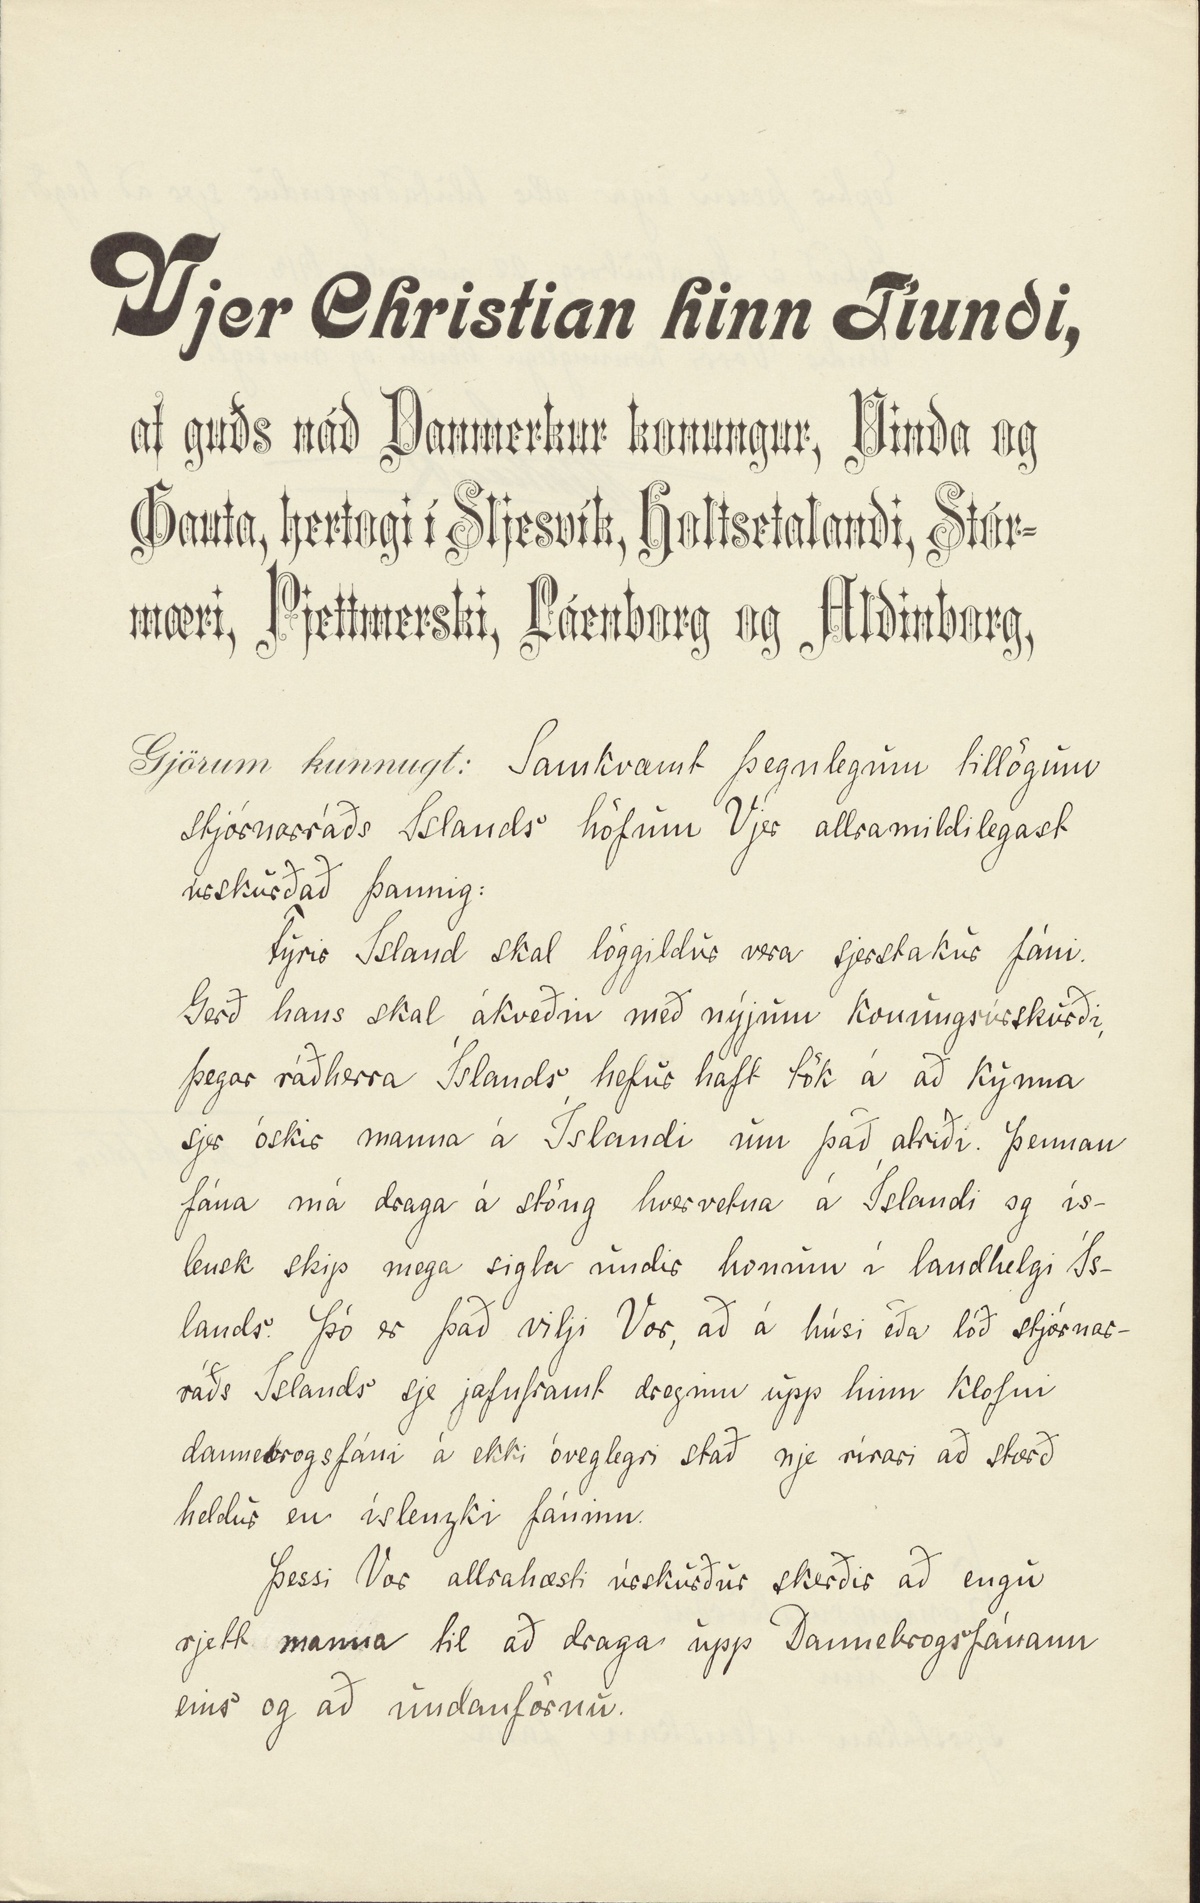 Vjer Christian hinn Tíundi,
af guðs náð Danmerkur konungur, Vinda og
Gauta, hertogi í Sljesvík, Holtsetalandi, Stór-
mæri, Þjettmerski, Láenborg og Aldinborg,
Gjörum kunnugt: Samkvæmt þegnlegum tillögum
stjórnarráðs Íslands höfum Vjer allramildilegast
úrskurðað þannig:
Fyrir Ísland skal löggildur vera sjerstakur fáni.
Gerð hans skal ákveðin með nýjum konungsúrskurði,
þegar ráðherra Íslands hefur haft tök á að kynna
sjer óskir manna á Íslandi um það atriði. Þennan
fána má draga á stöng hvervetna á Íslandi og ís-
lensk skip mega sigla undir honum í landhelgi Ís-
lands. Þó er það vilji Vor, að á húsi eða lóð stjórnar-
ráðs Íslands sje jafnframt dreginn upp hinn klofni
dannebrogsfáni á ekki óveglegri stað nje rírari að stærð
heldur en íslenzki fáninn.
Þessi Vor allrahæsti úrskurður skerðir að engu
rjett manna til að draga upp Dannebrogsfánann
eins og að undanförnu.